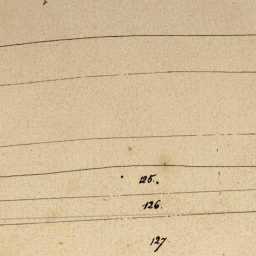 125.
126.
127